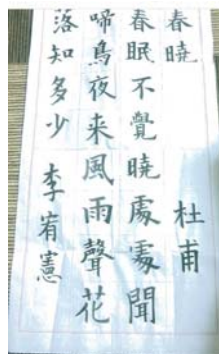 春晓 杜甫
春眠不覺晓處處聞
啼鳥夜来風雨聲花
落知多少 李宥憲